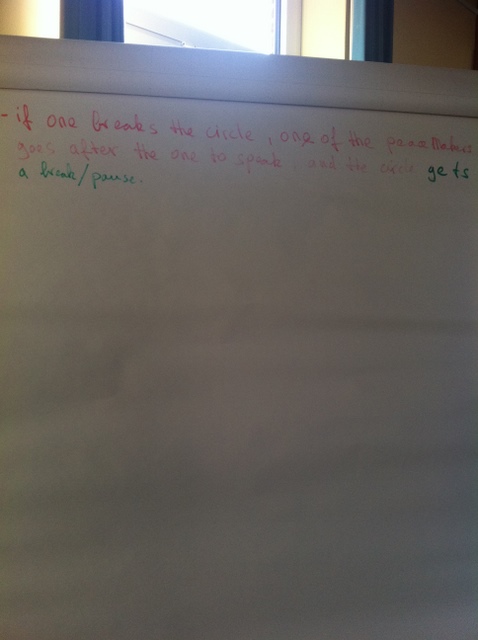 - if one breaks the circle, one of the peacemakers
goes after the one to speak, and the circle gets
a break/pause.